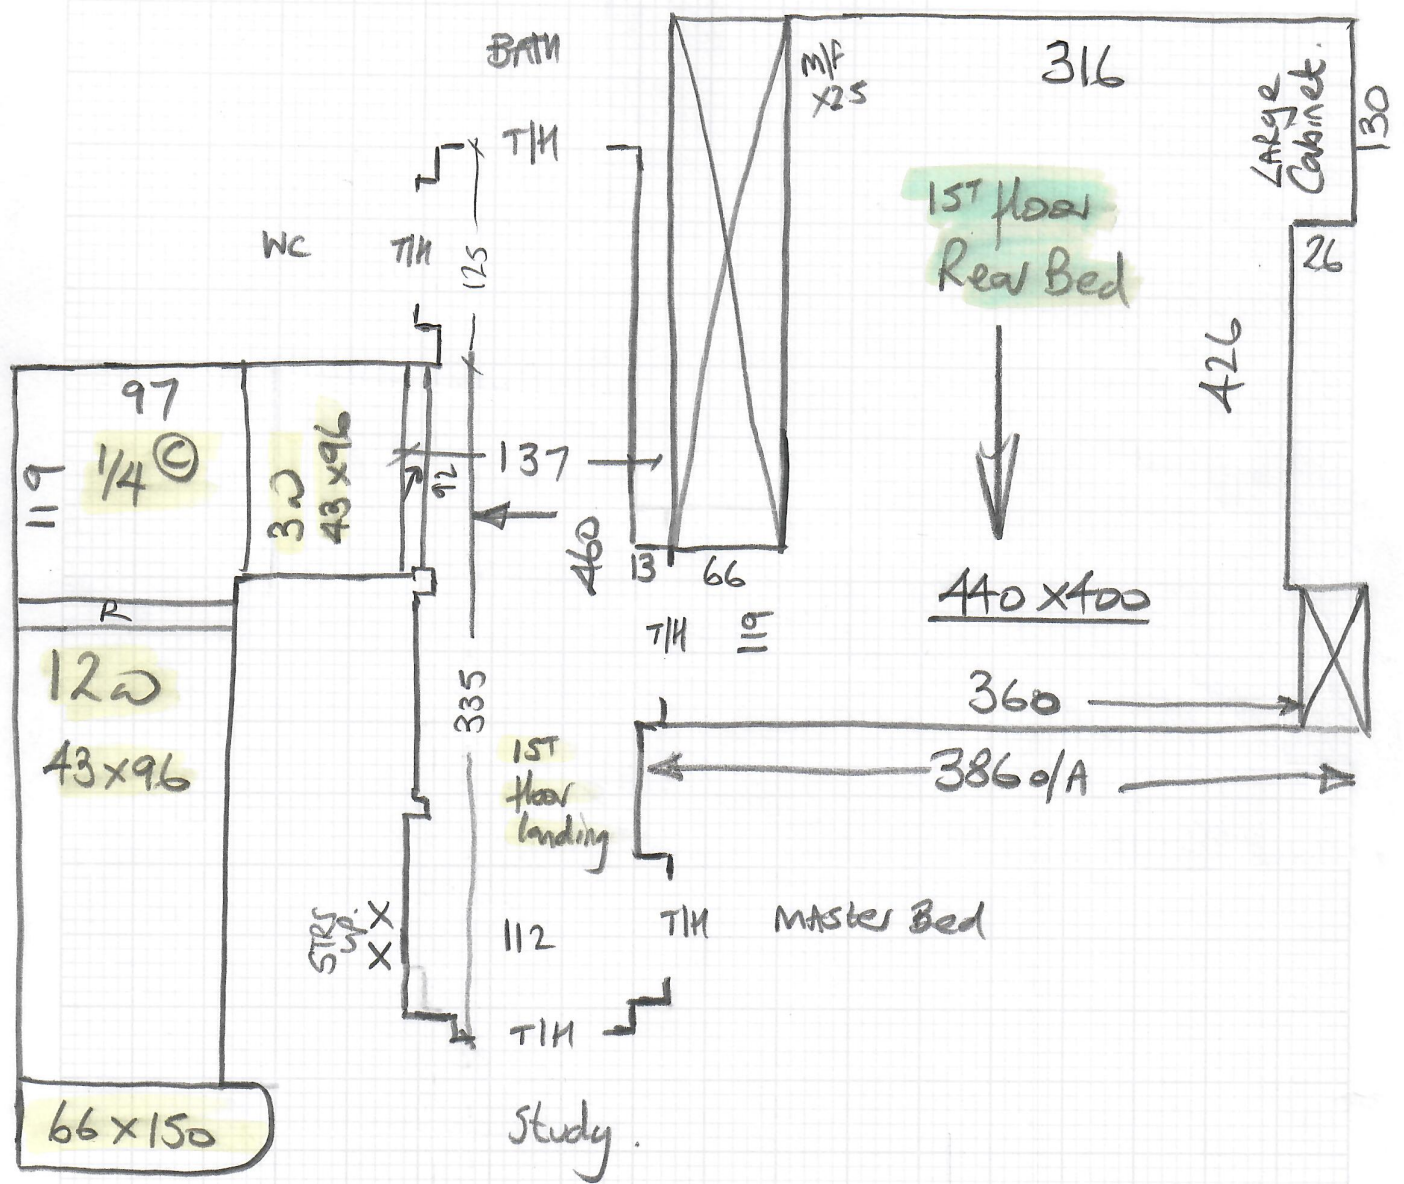 BATH
T/H
M/F
X25
316
LARge
Cabinet.
130
1ST floor
Rear Bed
26
WC
T/H
125
426
97
1/4 ©
119
3W
43 x 96
92
137
460
13
66
T/H
119
440 X 400
R
12W
43 x 96
335
360
386 o/A
1ST
floor
landing
STRS
UP.
X
X
112
T/H
MASter Bed
T/H
66 X 150
Study.